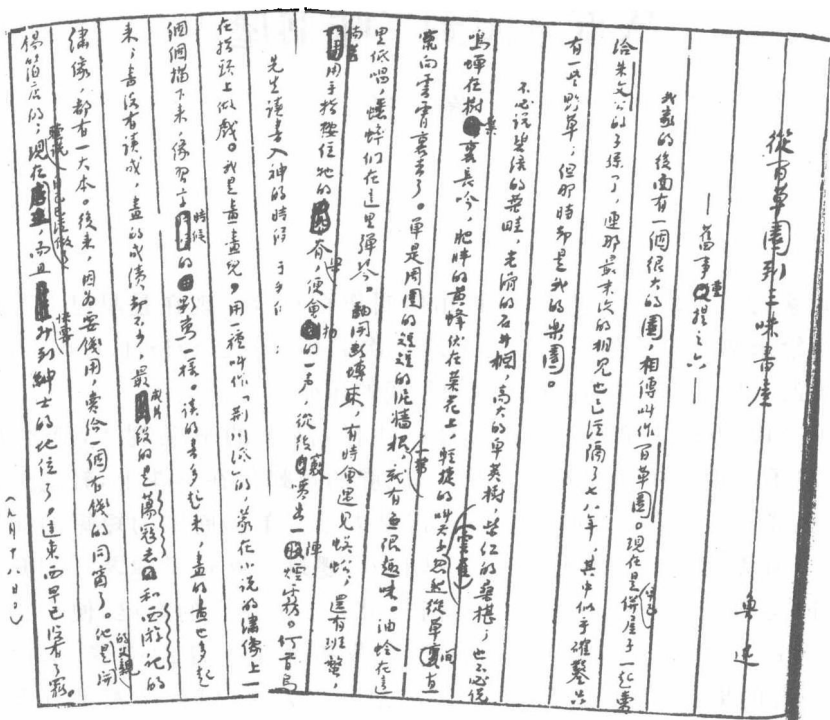 從百草園到三味書屋
——舊事重提之六——
魯迅
我家的後面有一個很大的園，相傳叫作百草園。現在是早已併屋子一起賣
給朱文公的子孫了，連那最末次的相見也已經隔了七八年，其中似乎確鑿只
有一些野草；但那時却是我的樂園。
不必說碧綠的菜畦，光滑的石井欄，高大的皁莢樹，紫紅的桑椹；也不必說
鳴蟬在樹葉裏長吟，肥胖的黃蜂伏在菜花上，輕捷的叫天子（雲雀）忽然從草間直
竄向雲霄裏去了。單是周圍的短短的泥牆根一帶，就有無限趣味。油蛉在這
里低唱，蟋蟀們在這里彈琴。翻開斷塼來，有時會遇見蜈蚣；還有斑蝥，
倘若用手指按住牠的脊梁，便會拍的一聲，從後竅噴出一陣煙霧。何首烏
先生讀書入神的時候，于我們
在指頭上做戲。我是畫畫兒，用一種叫作「荆川紙」的，蒙在小說的繡像上一
個個描下來，像習字時候的影寫一樣。讀的書多起來，畫的畫也多起
來；書沒有讀成，畫的成績却不少，最成片段的是蕩寇志和西游記的
繡像，都有一大本。後來，因為要錢用，賣給一個有錢的同窗了。他的父親是開
錫箔店的；聽說現在自己已經做了店主，而且快要升到紳士的地位了。這東西早已沒有了罷。
（九月十八日。）